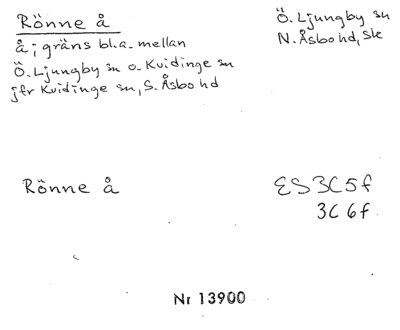 Rönne å
å; gräns bl.a. mellan
Ö. Ljungby sn o. Kvidinge sn
jfr Kvidinge sn, S. Åsbo hd
Ö. Ljungby sn
N. Åsbo hd, Sk
Rönne å
ES 3C5f
3C6f
Nr 13900